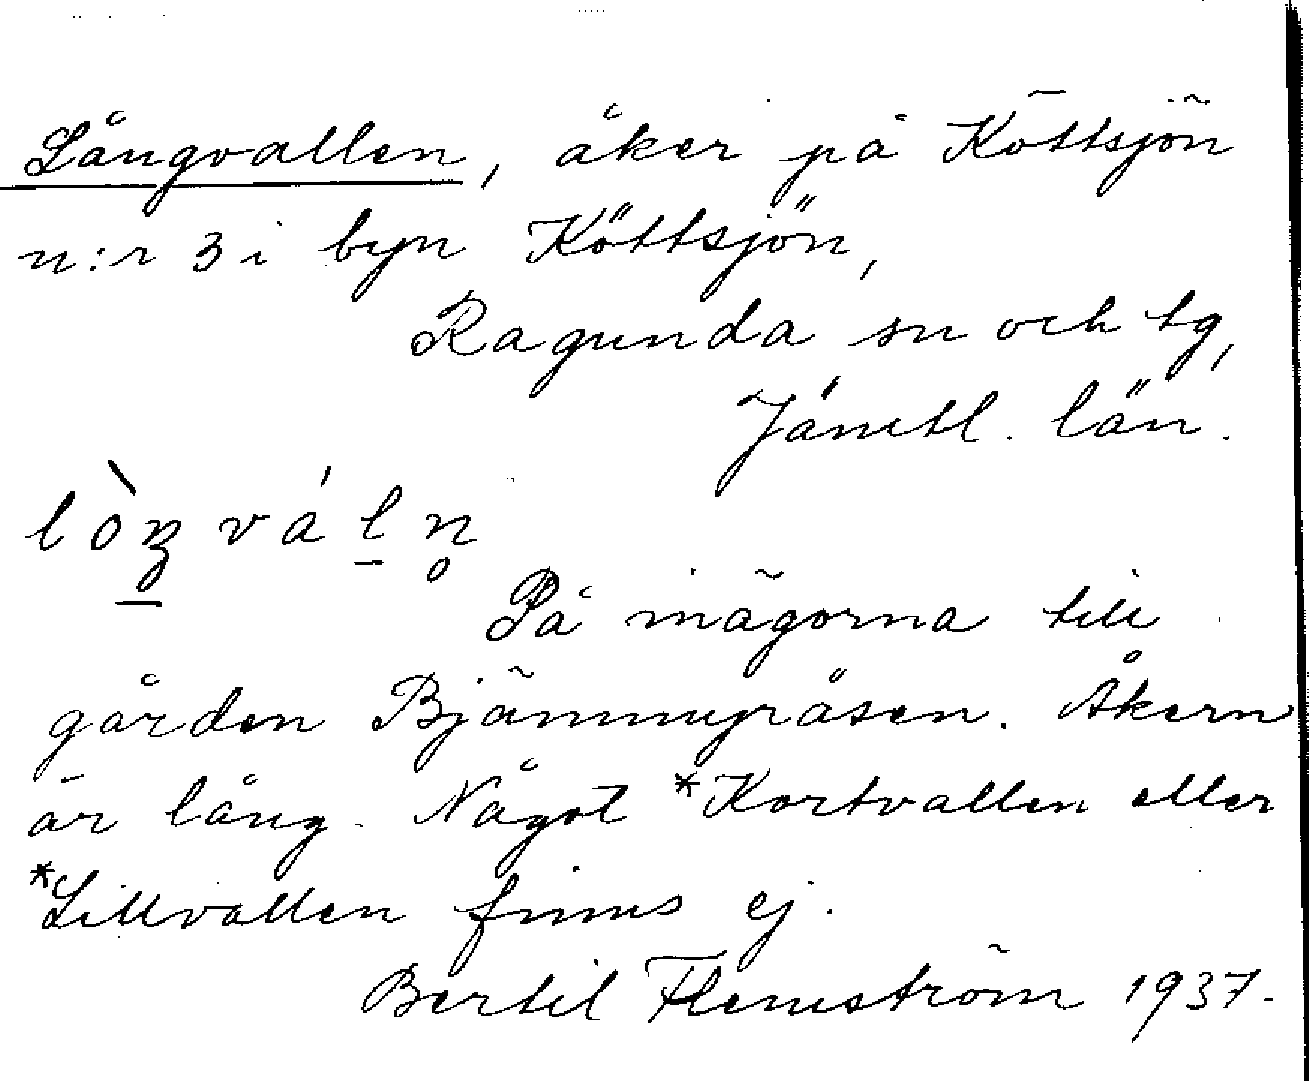 Långvallen, åker på Köttsjön
n:r 3 i byn Köttsjön,
Ragunda sn och tg,
Jämtl. län.
lòŋvál̠n̥
På inägorna till
gården Bjämmyråsen. Åkern
är lång. Något *Kortvallen eller
*Lillvallen finns ej.
Bertil Flemström 1937.